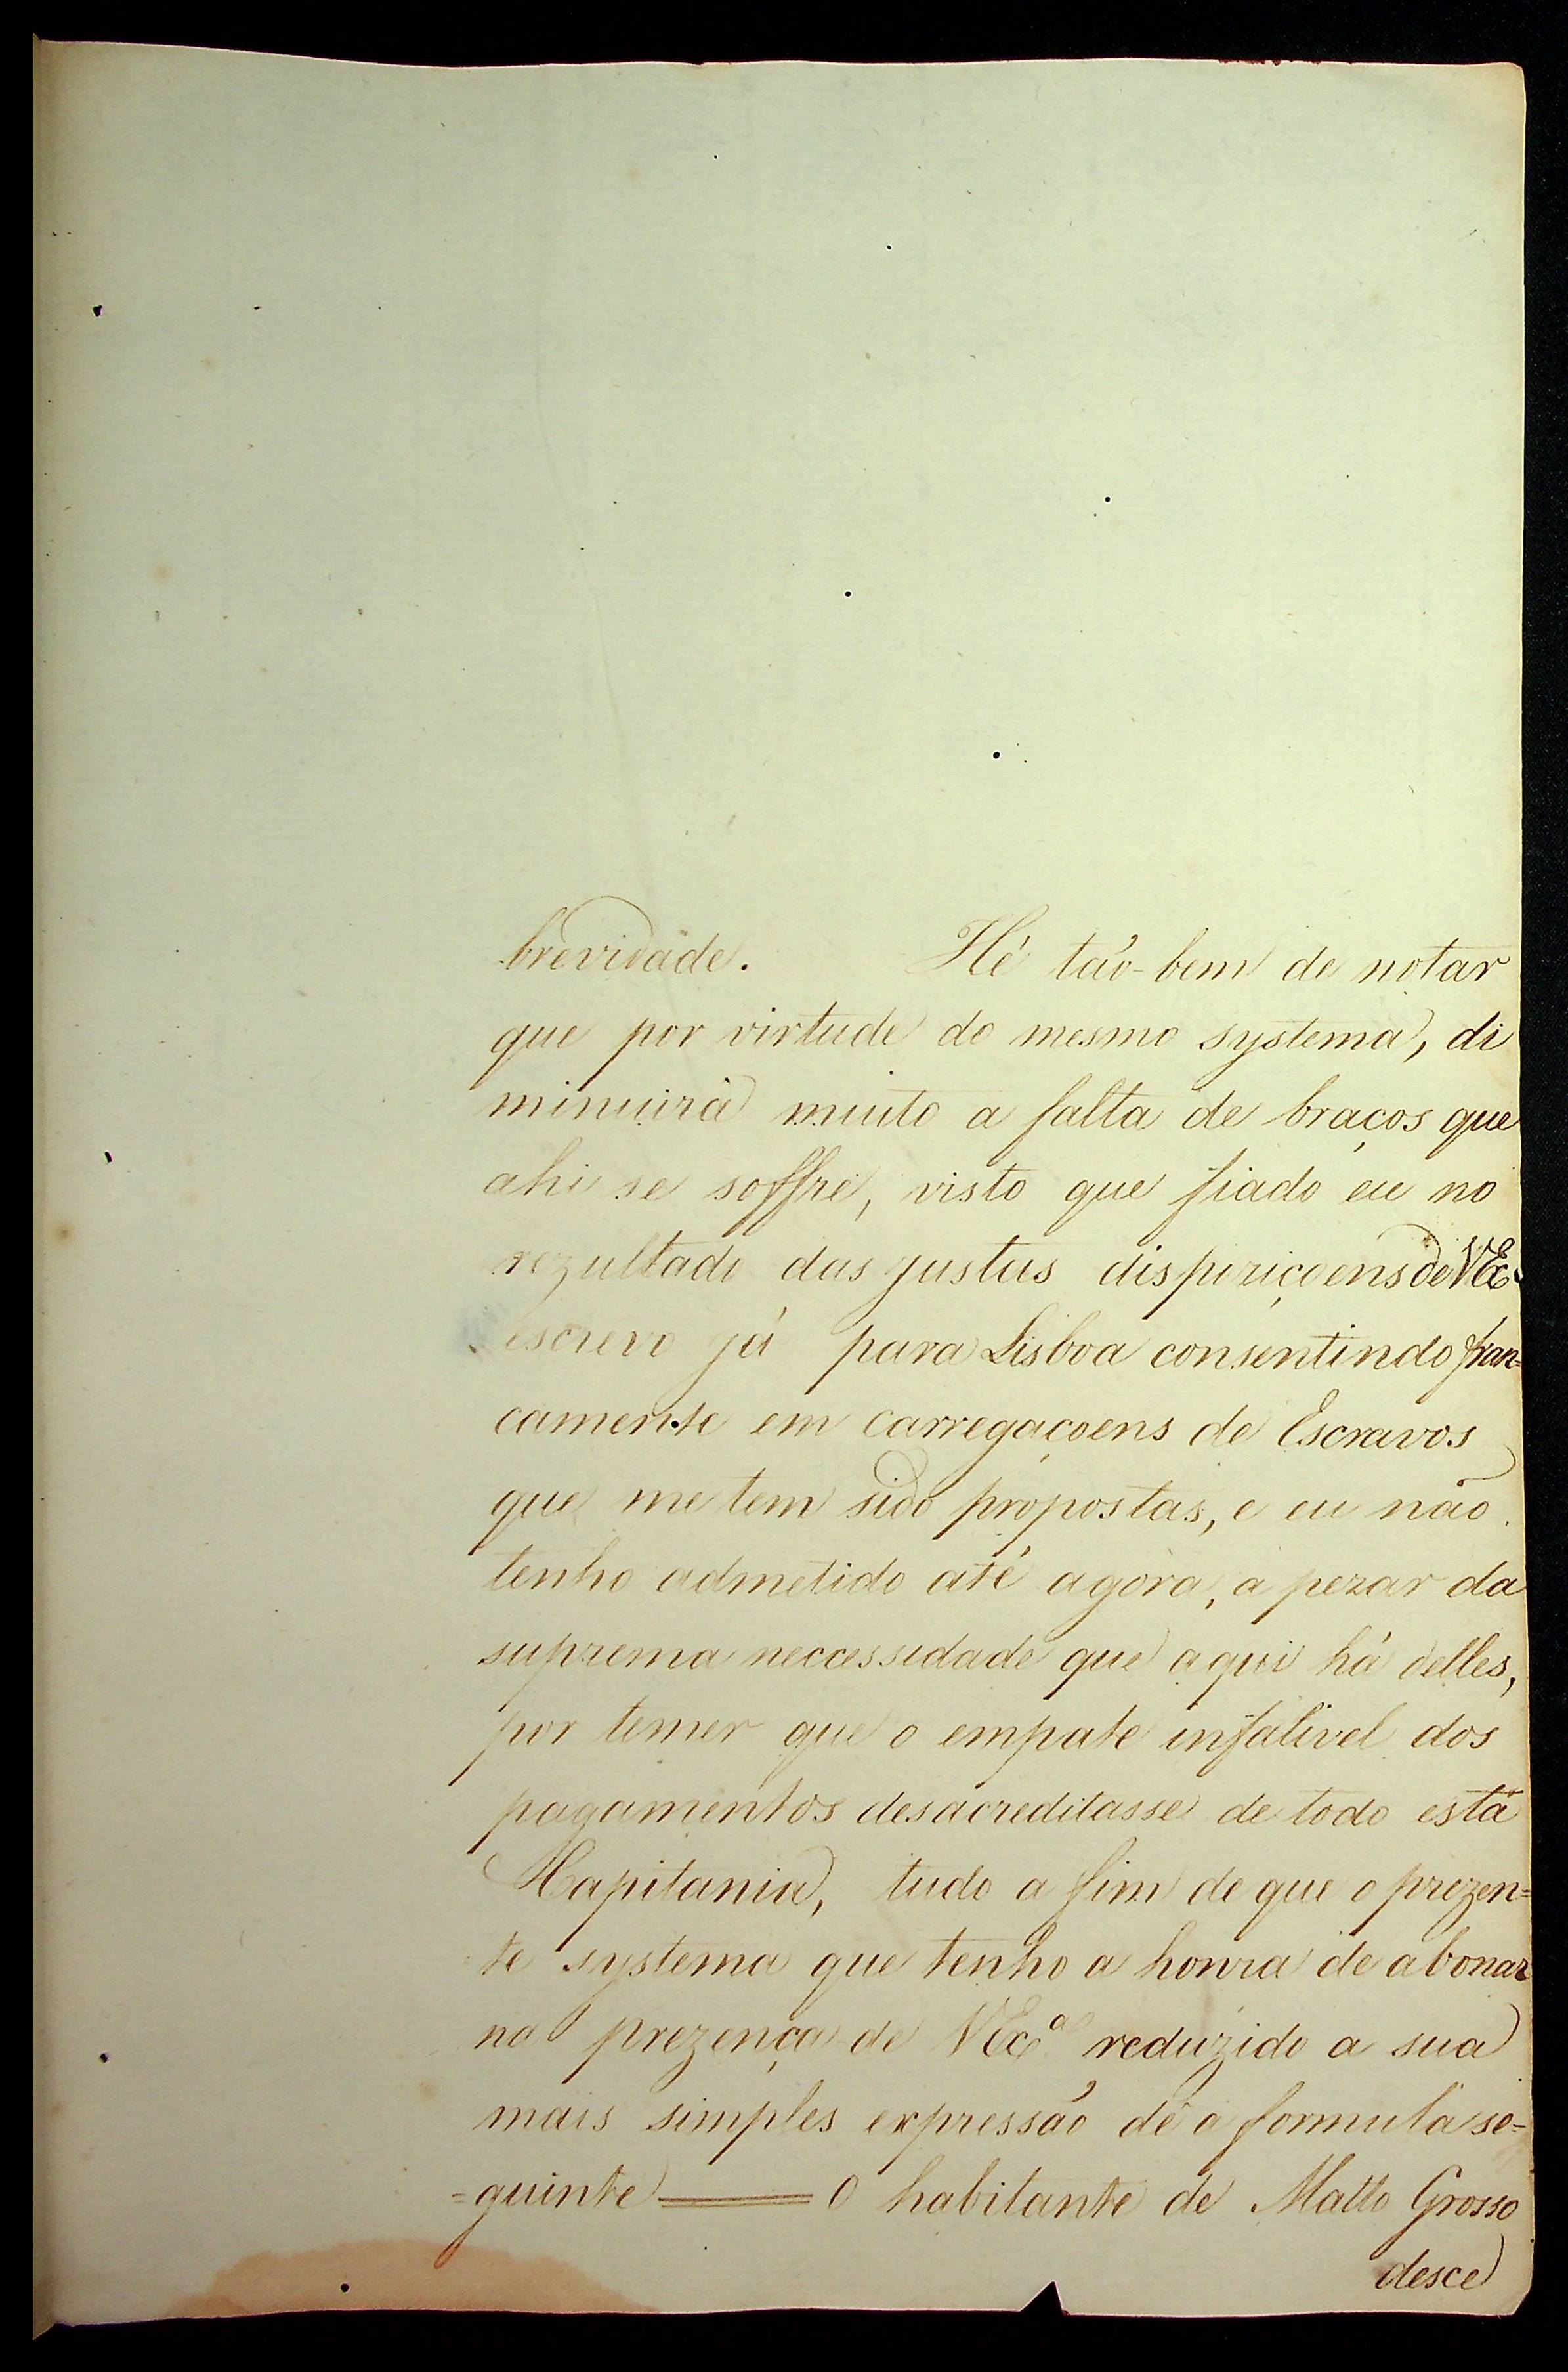 brevidade. Hé táo-bem de notar
que por virtude do mesmo systema, di
minuirá muito a falta de braços que
ahi se soffre, visto que fiado eu no
rezultado das justas dispiziçoens de VEx.ª
escrevo já para Lisboa consentindo fran=
camente em carregaçoens de Escravos
que me tem sido propostas, e eu não
tenho admetido até agora, a pezar da
suprema neccessidade que aqui há delles,
por temer que o empate infalivel dos
pagamentos desacreditasse de todo está
Kapitania, tudo a fim de que o prezen=
te systema que tenho a honra de abonar
na prezença de VExª reduzido a sua
mais simples expressáo dê a formula se=
=guinte == O habitante de Matto Grosso
desce